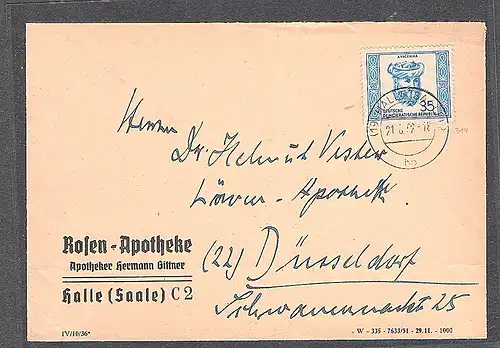 AVICENNA
35
DEUTSCHE
DEMOKRATISCHE REPUBLIK
Herrn
Dr. Helmut Vester
Löwen-Apotheke
(22) Düsseldorf
Rosen-Apotheke
Apotheker Hermann Gittner
Halle (Saale) C 2
IV/10/36*
- W - 335 - 7633/51 - 29. 11. - 1000